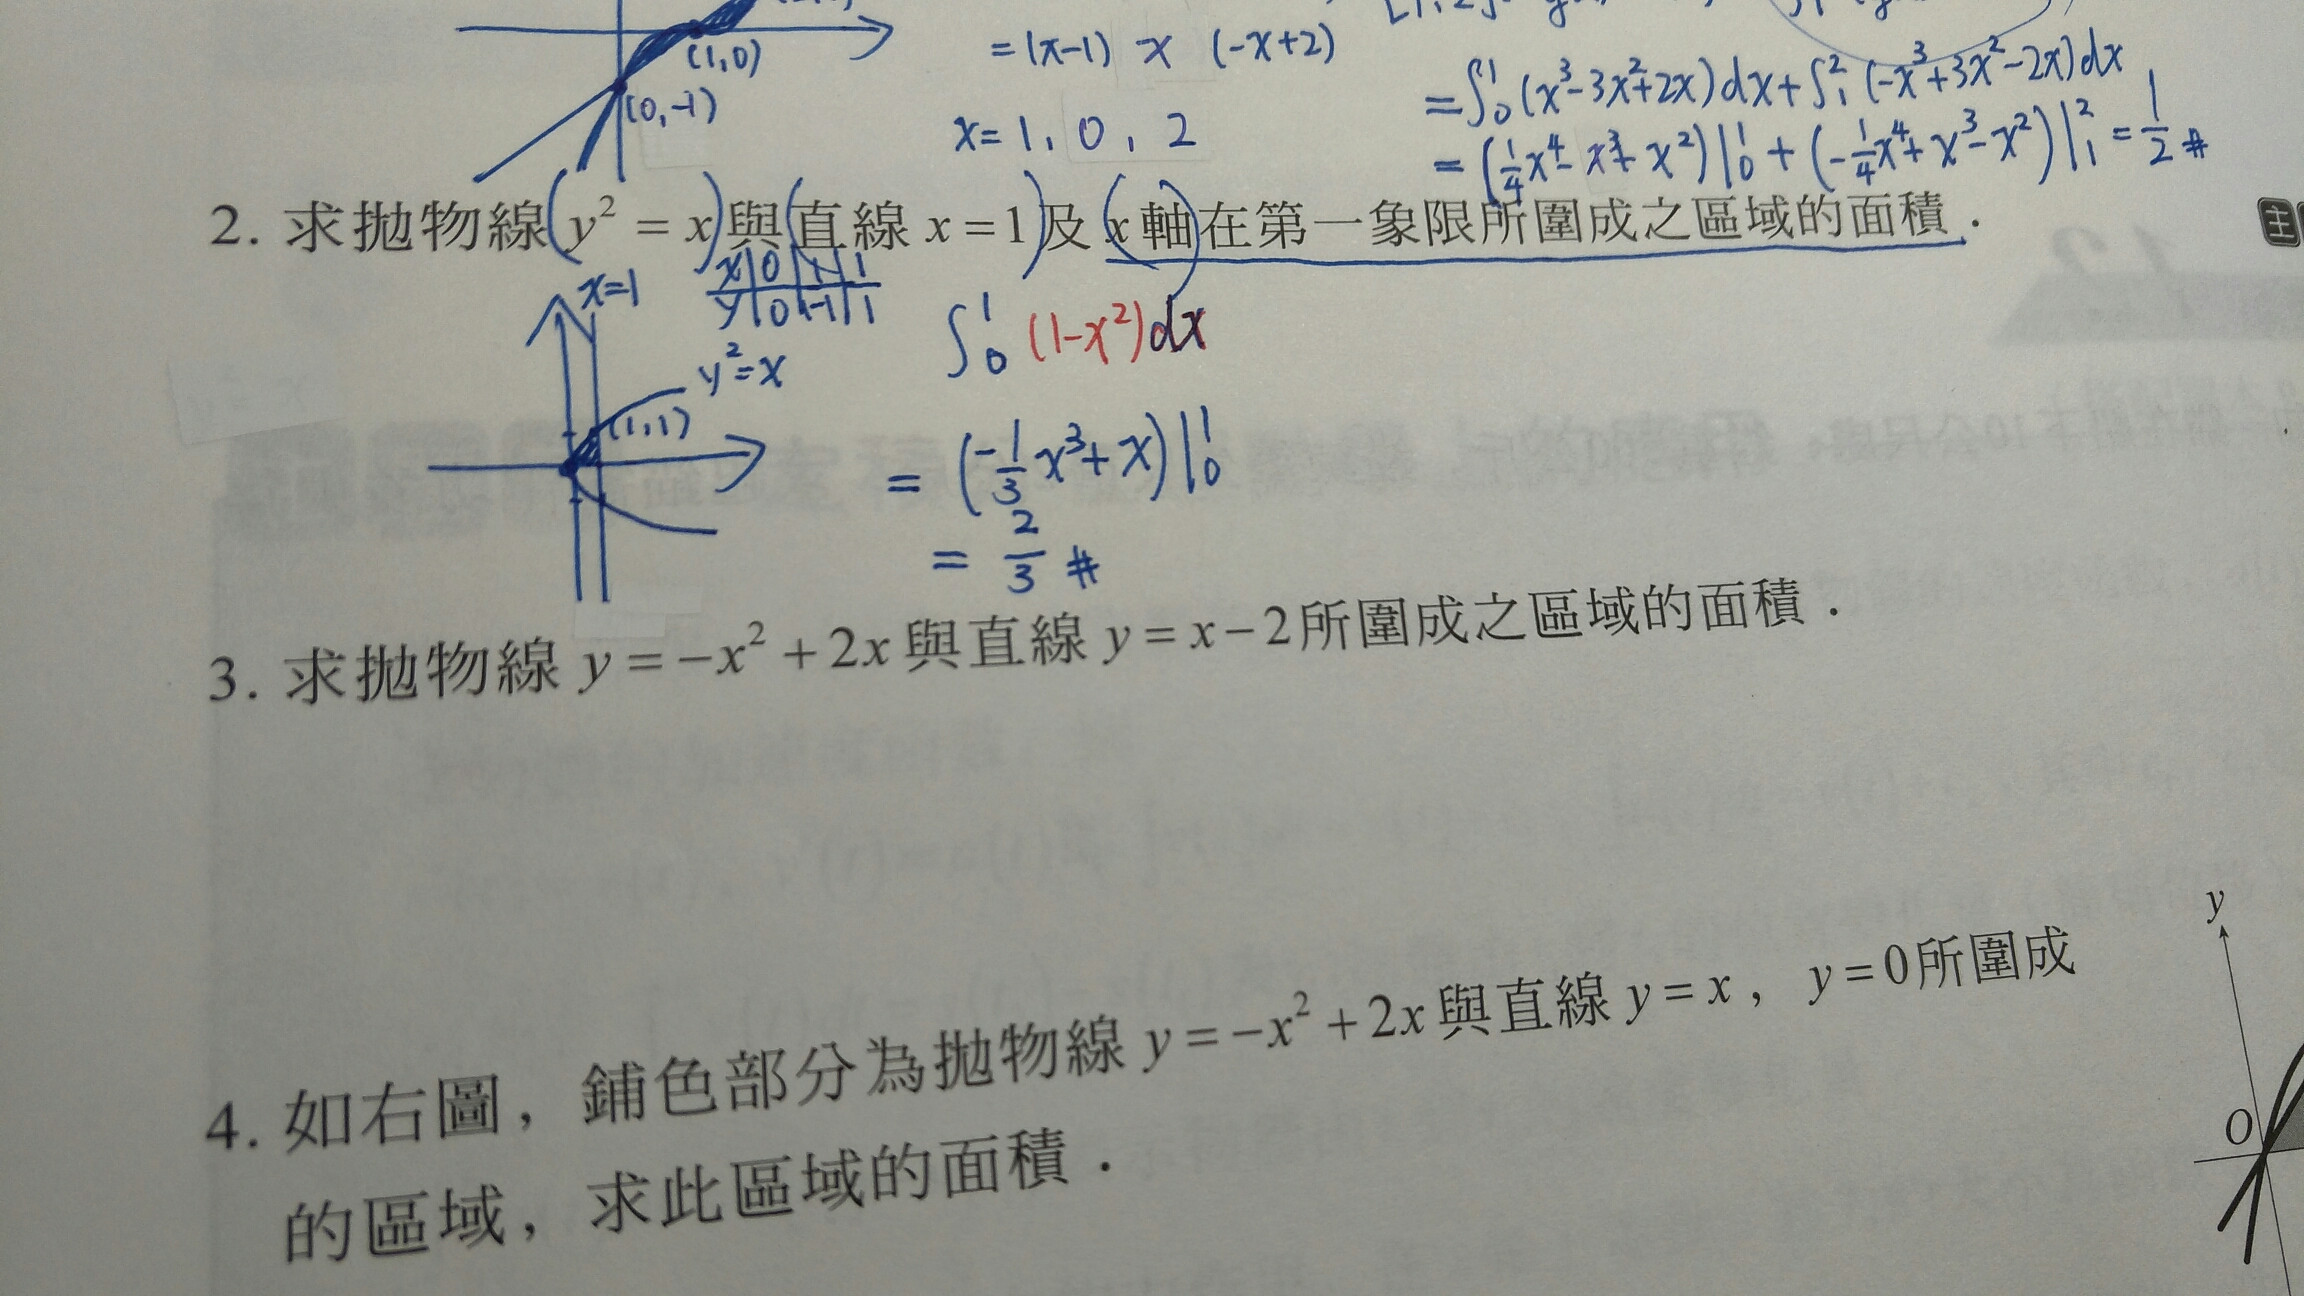 (1,0)
(0,-1)
=(x-1) x (-x+2)
x=1, 0, 2
=∫₀¹(x³-3x²+2x)dx+∫₁²(-x³+3x²-2x)dx
=(1/4x⁴-x³+x²)|₀¹+(-1/4x⁴+x³-x²)|₁²=1/2#
2. 求拋物線(y²=x)與(直線 x=1)及(x軸)在第一象限所圍成之區域的面積．
主
x=1
x|0|1|1
y|0|-1|1
y²=x
(1,1)
∫₀¹(1-x²)dx
=(-1/3x³+x)|₀¹
=2/3#
3. 求拋物線 y=-x²+2x與直線 y=x-2所圍成之區域的面積．
4. 如右圖，鋪色部分為拋物線 y=-x²+2x與直線 y=x，y=0所圍成
的區域，求此區域的面積．
y
O